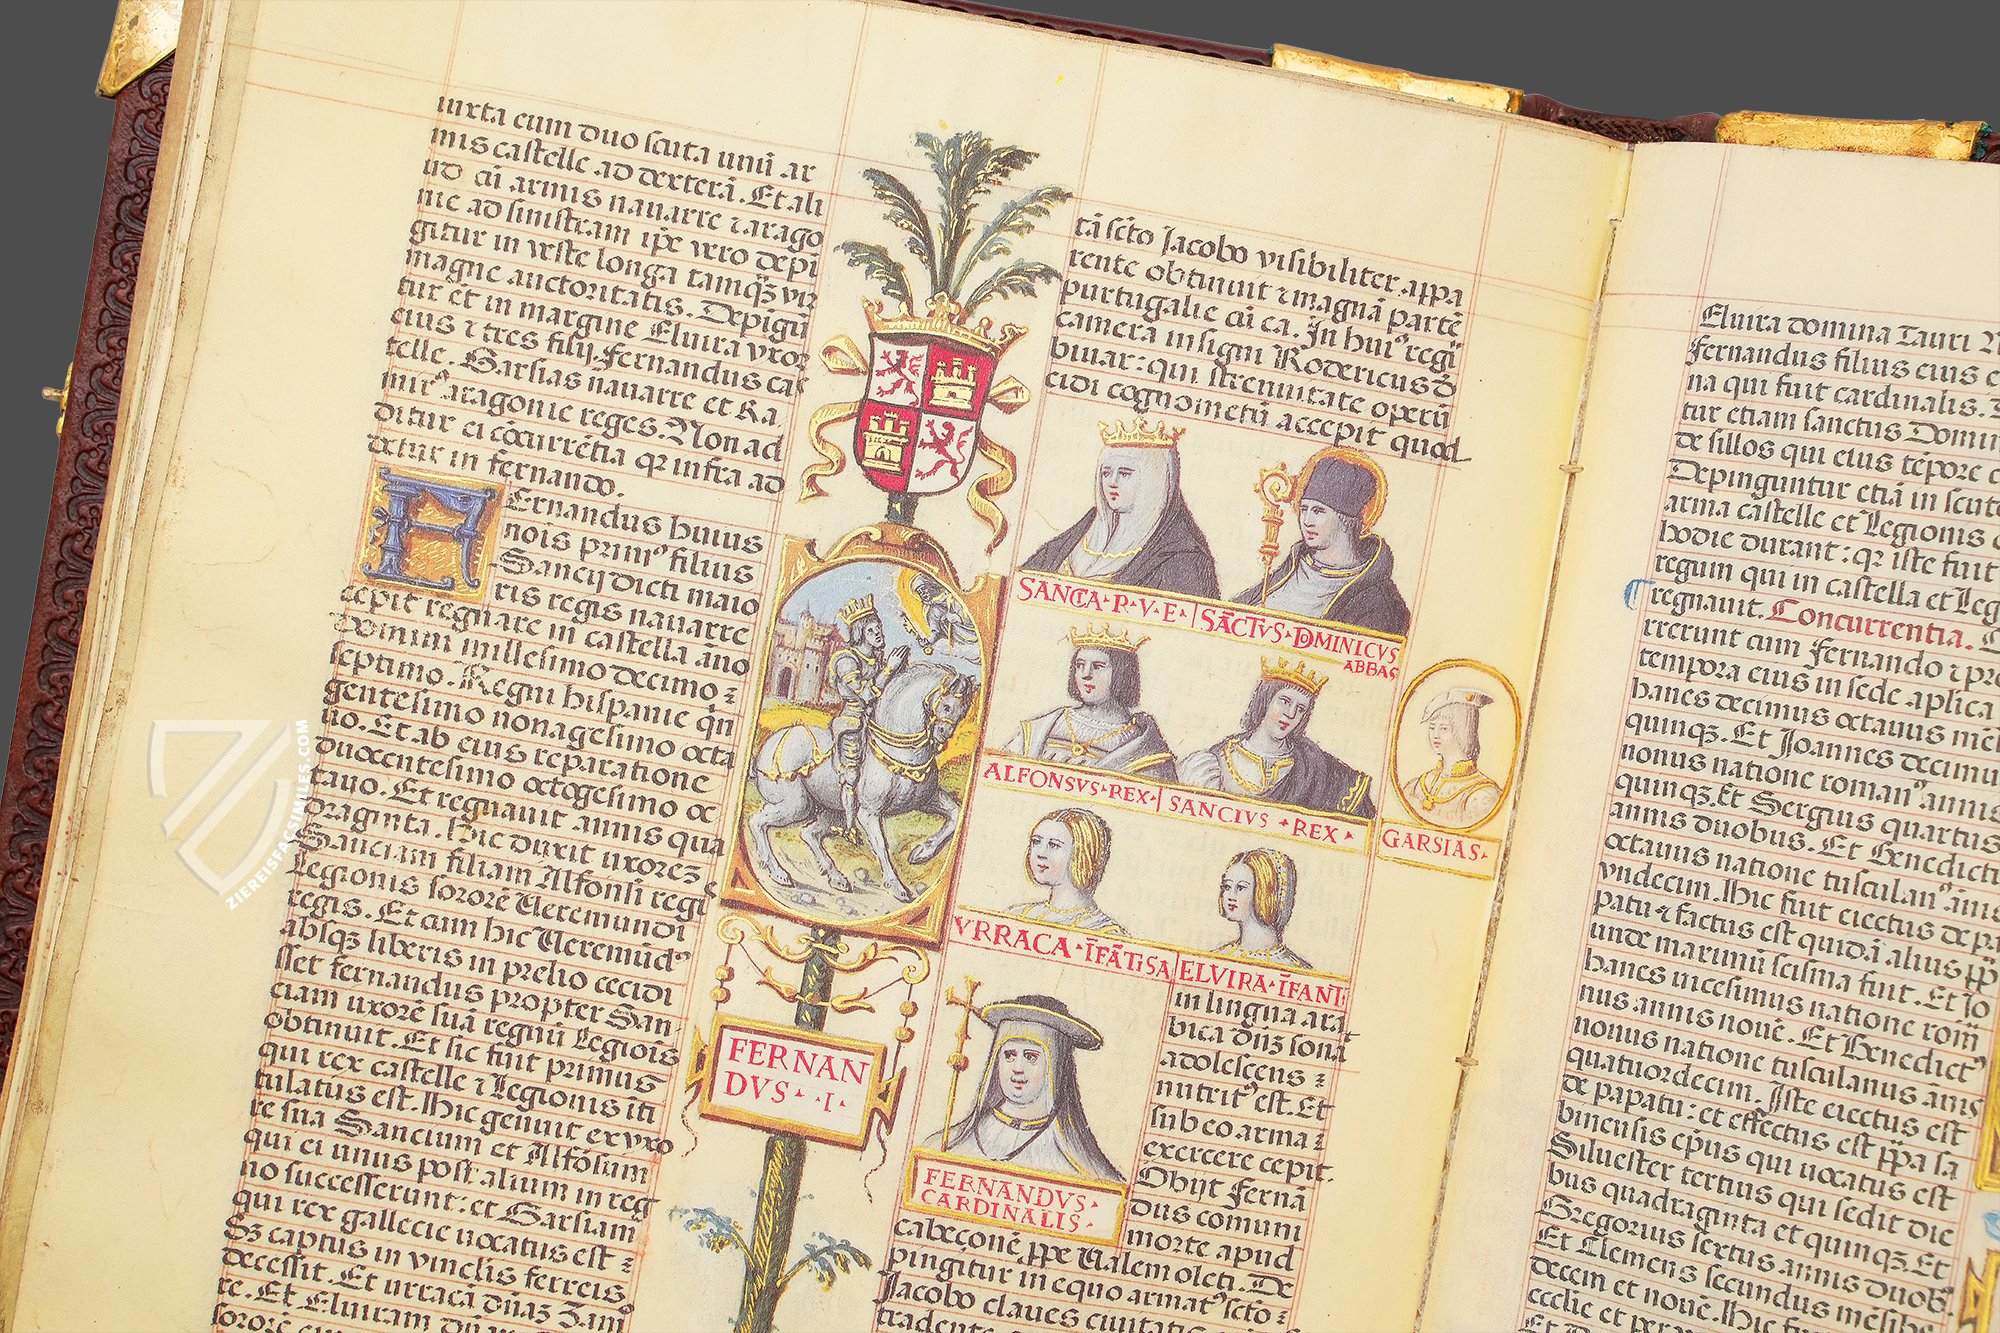 iuxta cum duo scuta unũ ar
mis castelle ad dexterã. Et ali
ud cũ armis nauarre ⁊ arago
nie ad sinistram ipẽ vero depi
gitur in veste longa tamqʒ vir
magne auctoritatis. Depigũ
tur et in margine Eluira vxor
eius ⁊ tres filij. Fernandus cas
telle. Garsias nauarre et Ra
mirꝰ aragonie reges. Non ad
ditur ei cõcurrẽtia qr infra ad
detur in fernando.
FErnandus huius
nois primꝰ filius
Sancij dicti maio
ris regis nauarre
cepit regnare in castella ãno
Domini millesimo decimo ⁊
septimo. Regni hispanie qũ
gentesimo nonagesimo octa
uo. Et ab eius reparatione
duocentesimo octogesimo oc
tauo. Et regnauit annis qua
draginta. Hic duxit uxoreʒ
Sanciam filiam Alfonsi regi
Legionis sororẽ Ueremundi
regis. Et cum hic Ueremũdꝰ
absqʒ liberis in prelio cecidi
sset fernandus propter San-
ciam uxorẽ suã regnũ Legiõis
obtinuit. Et sic fuit primus
qui rex castelle ⁊ Legionis iti
tulatus est. Hic genuit ex vxo
re sua Sancium et Alfõsum
qui ei unus post alium in reg
no successerunt: et Garsiam
qui rex gallecie uocatus est ⁊
Sʒ captus in vinclis ferreis
decessit. Et urracã dñaʒ Zam
re. Et Eluiram
FERNAN
DVS · I ·
tã scto Jacobo visibiliter appa
rente obtinuit ⁊ magnã partẽ
purtugalie cũ ea. In huiꝰ regij
camera insigni Rodericus d
biuar: qui strenuitate operũ
cidi cognometũ accepit quod
SANCIA · R · V · E ·
SÃCTVS · DOMINICVS
ABBAS
ALFONSVS · REX ·
SANCIVS · REX ·
GARSIAS ·
VRRACA · ĨFÃTISA
ELVIRA · ĨFANT
FERNANDVS ·
CARDINALIS ·
in lingua ara
bica dñʒ sonã
adolescens ⁊
nutritꝰ est. Et
sub eo arma ⁊
exercere cepit.
Obijt Fernã
dus comuni
morte apud
cabeçonẽ ppe Ualem oleti. De
pingitur in equo armatꝰ scto ⁊
Jacobo claues ciuitatis
tradente
Eluira domina Tauri
Fernandus filius eius
na qui fuit cardinalis.
tur etiam sanctus Domin
de sillos qui eius tẽpore
Depinguntur etiã in scut
arma castelle et Legionis
hodie durant: qr iste fuit
regum qui in castella et Leg
regnauit. Concurrentia.
rrerunt cum Fernando ⁊ pre
tempora eius in sede aplica
hanes decimus octauus mẽ
quinqʒ. Et Joannes decimu
nonus natione romanꝰ annis
quinqʒ. Et Sergius quartus
annis duobus. Et Benedicti
octauus natione tusculanꝰ ãnis
vndecim. Hic fuit eiectus de pa
patu ⁊ factus est quidã alius pp̃
unde maximũ scisma fuit. Et Jo
hanes vicesimus natione rom̃
nus annis nouẽ. Et Benedictꝰ
nonus natione tusculanus ãnis
quatuordecim. Iste eiectus est
de papatu: et effectus est pp̃a sa
binensis ep̃us qui uocatus est
Siluester tertius qui sedit die
bus quadraginta et quinqʒ. Et
Gregorius sextus annis duobꝰ.
Et Clemens secundus mẽsibꝰ
decem et nouẽ. Hic fuit
ZIEREISFACSIMILES.COM